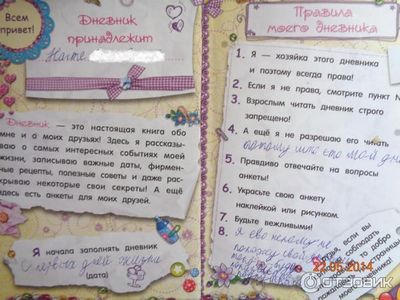 Всем
привет!
Дневник
принадлежит
Насте
Дневник — это настоящая книга обо
мне и о моих друзьях! Здесь я рассказы-
ваю о самых интересных событиях моей
жизни, записываю важные даты, фирмен-
ные рецепты, полезные советы и даже рас-
крываю некоторые свои секреты! А ещё
здесь есть анкеты для моих друзей.
Я начала заполнять дневник
с первых дней жизни
(дата)
Правила
моего дневника
1. Я — хозяйка этого дневника
и поэтому всегда права!
2. Если я не права, смотрите пункт №
3. Взрослым читать дневник строго
запрещено!
4. А ещё я не разрешаю его читать
потому што это мой дне
5. Правдиво отвечайте на вопросы
анкеты!
6. Украсьте свою анкету
наклейкой или рисунком.
7. Будьте вежливыми!
8. Я ево некому не
покажу
если вы
соблюдать
то добро
страницы
22.05.2014
ОТЗОВИК